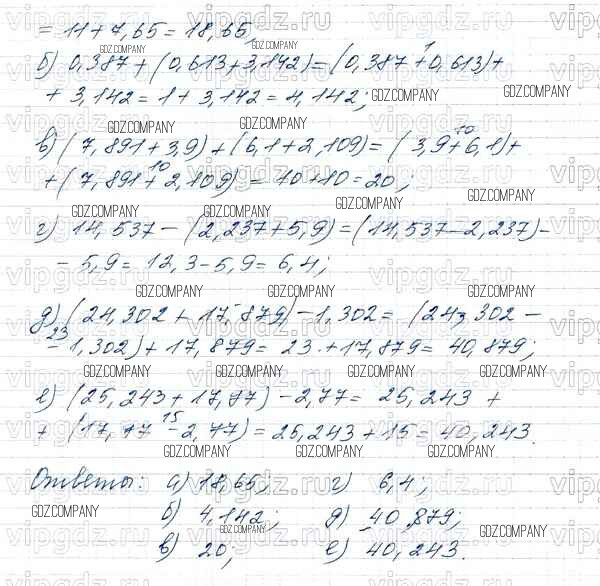 = 11 + 7,65 = 18,65
б) 0,387 + (0,613 + 3,142) = (0,387 + 0,613) +
+ 3,142 = 1 + 3,142 = 4,142;
в) (7,891 + 3,9) + (6,1 + 2,109) = (3,9 + 6,1) +
+ (7,891 + 2,109) = 10 + 10 = 20;
г) 14,537 - (2,237 + 5,9) = (14,537 - 2,237) -
- 5,9 = 12,3 - 5,9 = 6,4;
д) (24,302 + 17,879) - 1,302 = (24,302 -
- 1,302) + 17,879 = 23 + 17,879 = 40,879;
е) (25,243 + 17,77) - 2,77 = 25,243 +
+ (17,77 - 2,77) = 25,243 + 15 = 40,243.
Ответы: а) 18,65; г) 6,4;
б) 4,142; д) 40,879;
в) 20; е) 40,243.